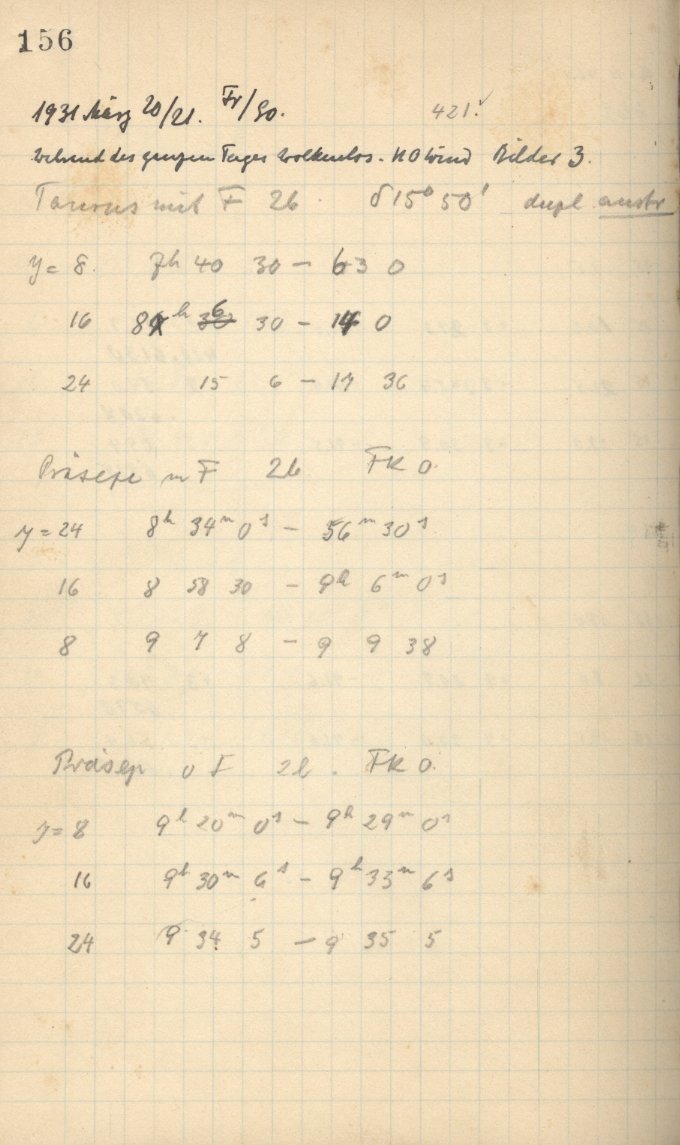 156
1931 März 20/21. Fr/So.
421.
während des ganzen Tages wolkenlos. NO Wind Bilder 3.
Taurus mit F 26 δ 15° 50' dupl austr
y = 8. 7h 40 30 — 63 0
16 8h 6 30 — 14 0
24 15 6 — 17 36
Präsepe m F 26 FK 0.
y = 24 8h 34m 0s — 56m 30s
16 8 58 30 — 9h 6m 0s
8 9 7 8 — 9 9 38
Präsep F 26. FK 0.
y = 8 9h 20m 0s — 9h 29m 0s
16 9h 30m 6s — 9h 33m 6s
24 9 34 5 — 9 35 5